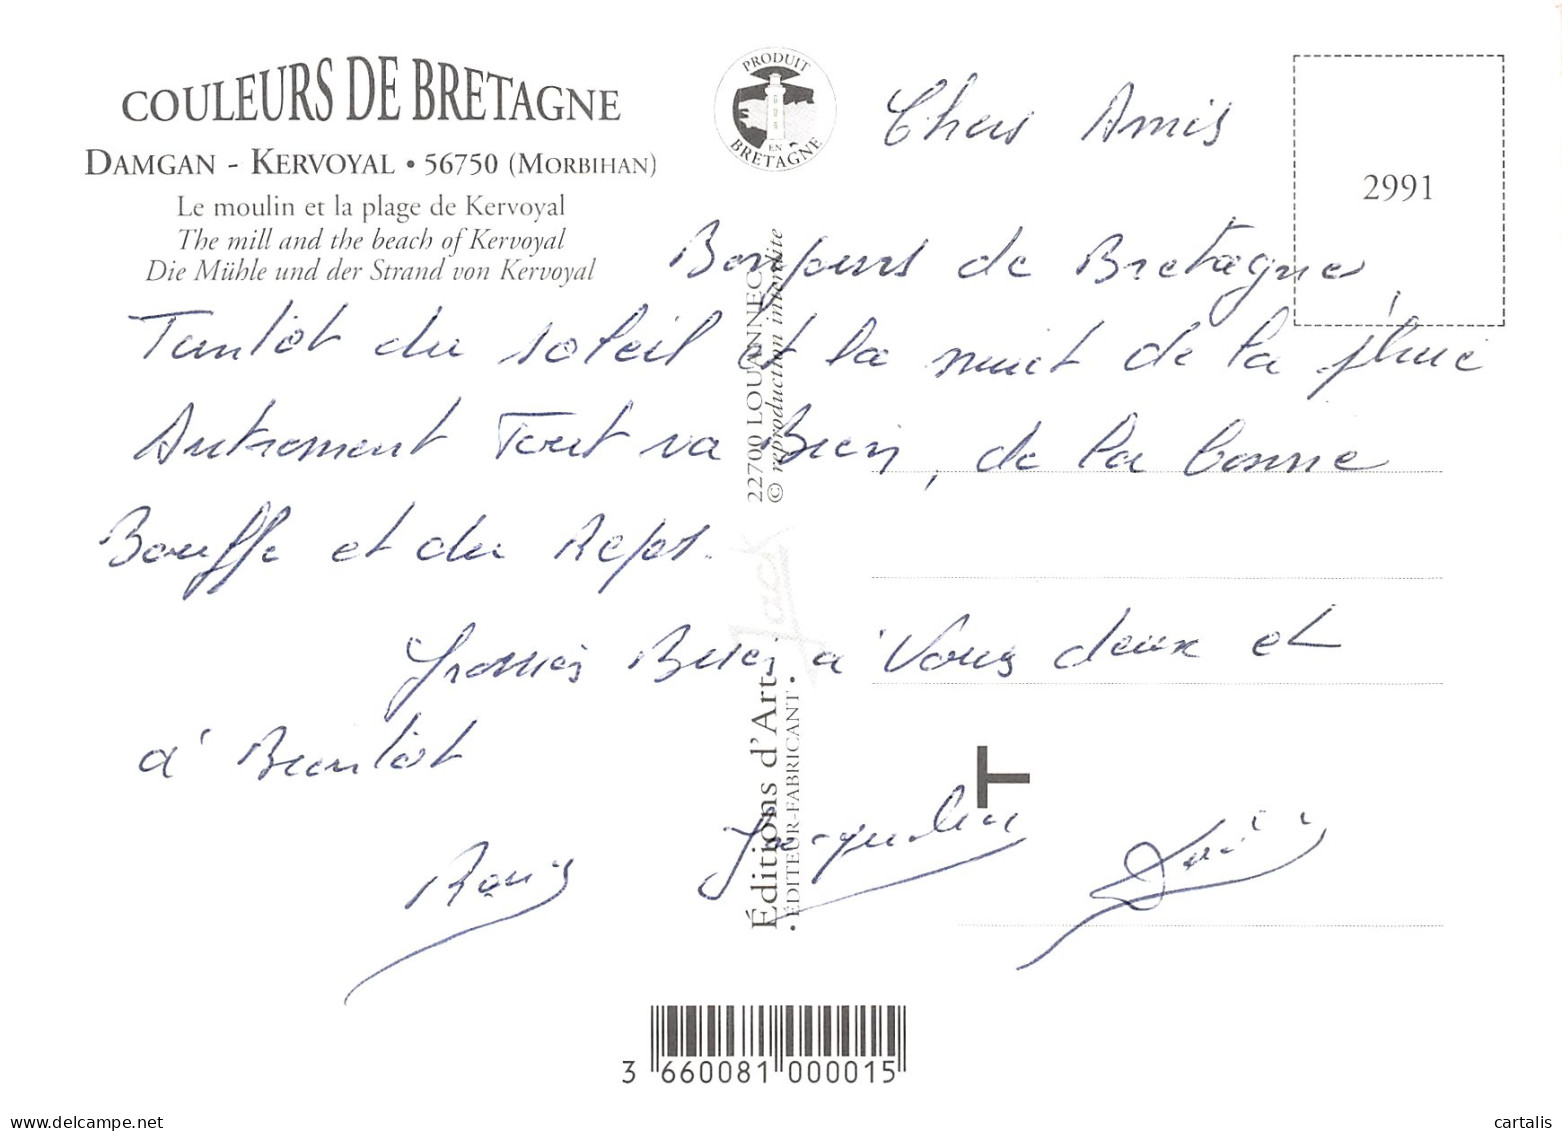 COULEURS DE BRETAGNE
DAMGAN - KERVOYAL • 56750 (MORBIHAN)
Le moulin et la plage de Kervoyal
The mill and the beach of Kervoyal
Die Mühle und der Strand von Kervoyal
PRODUIT
EN
BRETAGNE
2991
Chers Amis
Bonjours de Bretagne,
Tantôt du soleil et la nuit de la pluie
Autrement Tout va Bien, de la bonne
Bouffe et du Repos.
Grosses Bises à Vous deux et
à Bientôt
Jacqueline
22700 LOUANNEC
© reproduction interdite
Jack
Éditions d'Art
• ÉDITEUR-FABRICANT •
T
3 660081 000015
delcampe.net
cartalis